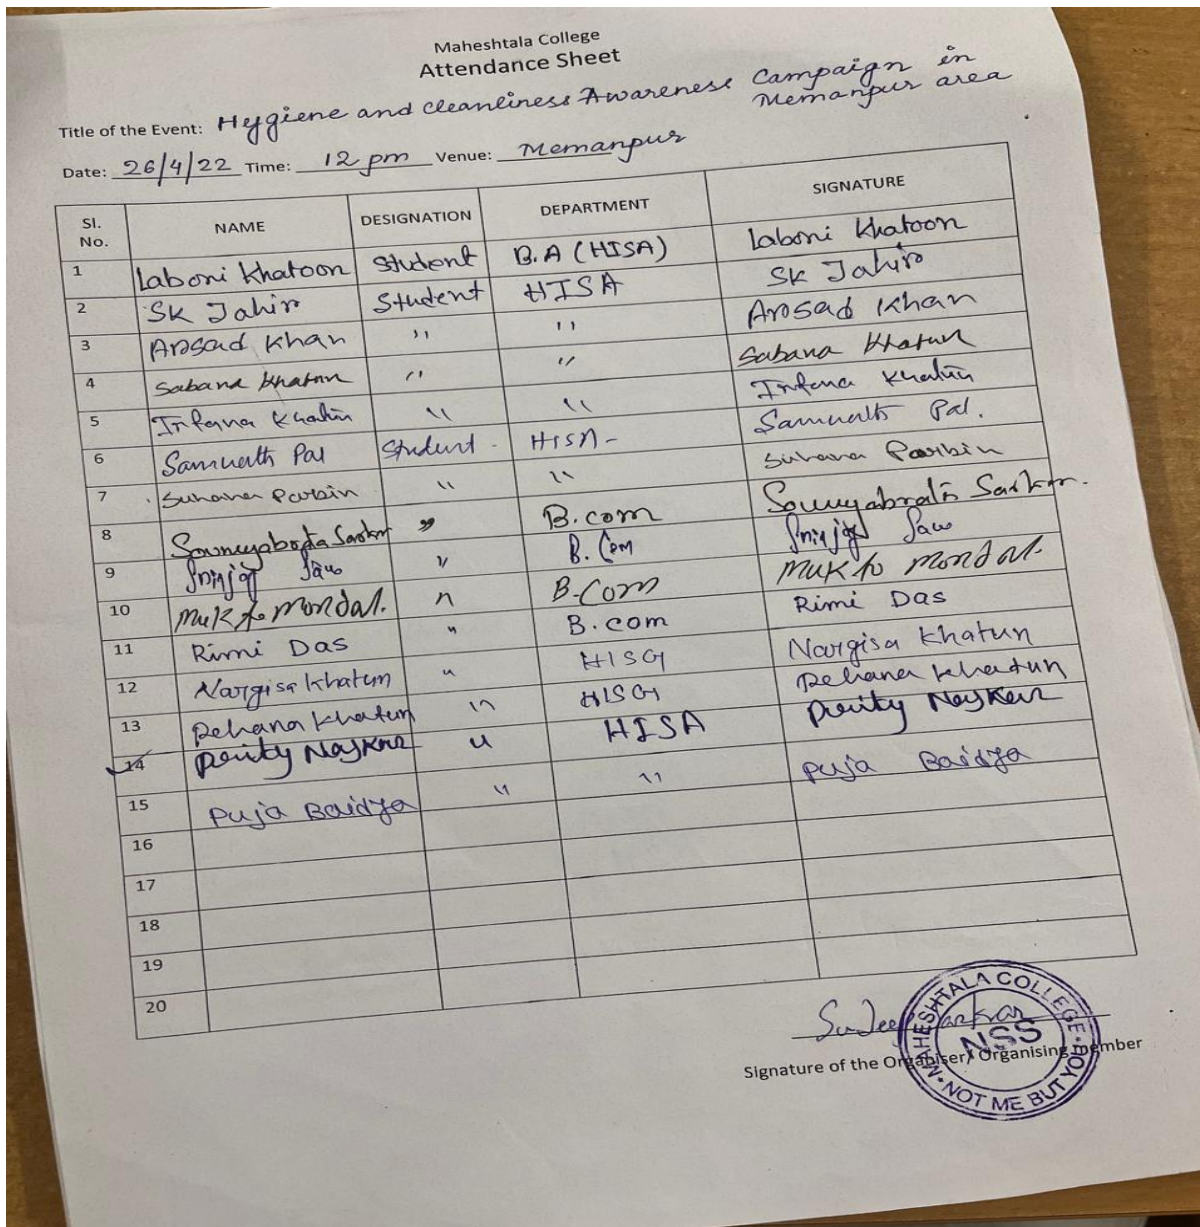 Maheshtala College
Attendance Sheet
Title of the Event: Hygiene and cleanliness Awareness Campaign in
Memanpur area
Date: 26/4/22 Time: 12 pm Venue: Memanpur
Sl. No. NAME DESIGNATION DEPARTMENT SIGNATURE
1 Laboni Khatoon Student B.A (HISA) Laboni Khatoon
2 SK Jahir Student HISA SK Jahir
3 Arsad Khan " " Arsad Khan
4 Sabana Khatun " " Sabana Khatun
5 Khatun " " Khatun
6 Pal Student - HISA - Pal.
7 Suhana Parbin " " Suhana Parbin
8 Sarkar " B.com Sarkar.
9 " B. Com
10 Mukto Mondal. " B.Com Mukto Mondal.
11 Rimi Das " B.com Rimi Das
12 Nargisa Khatun " HISG Nargisa Khatun
13 Rehana Khatun " HISG Rehana Khatun
14 Naskar " HISA Naskar
15 Puja Baidya " " Puja Baidya
16
17
18
19
20
Signature of the Organiser/ Organising member
MAHESHTALA COLLEGE
NSS
NOT ME BUT YOU